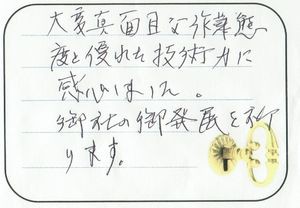 大変真面目な作業態
度と優れた技術力に
感心しました。
御社の御発展を祈
ります。